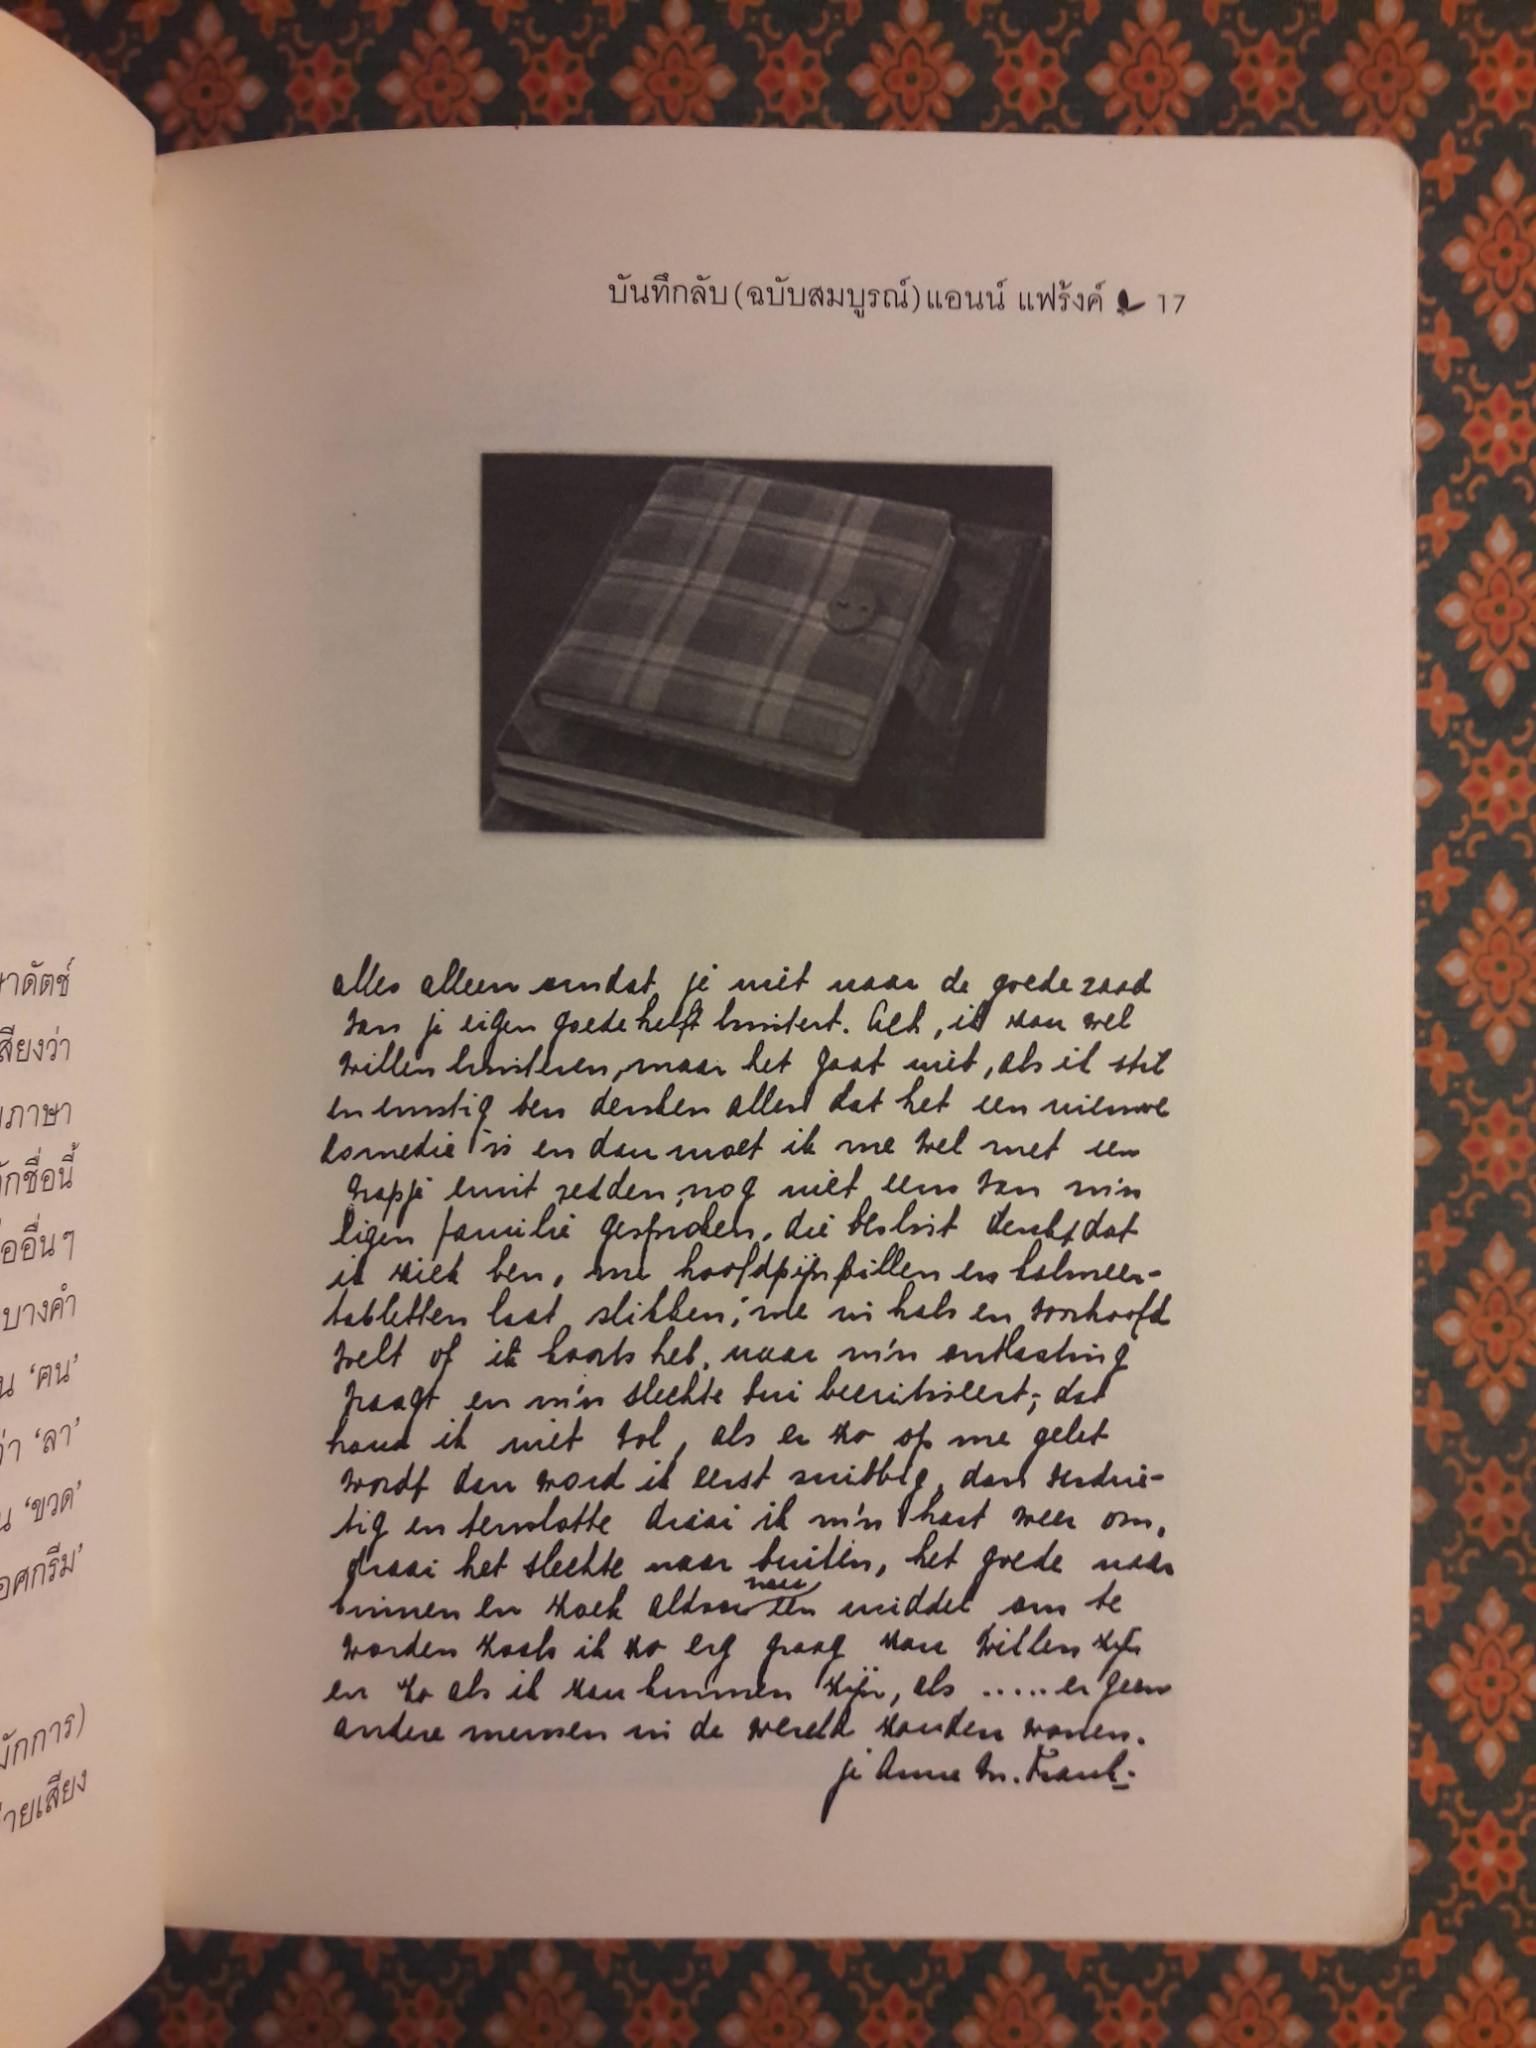 บันทึกลับ(ฉบับสมบูรณ์)แอนน์ แฟร้งค์ 17
alles alleen omdat je niet naar de goede raad
van je eigen goede helft luistert. Ach, ik zou wel
willen luisteren, maar het gaat niet, als ik stil
en ernstig ben denken allen dat het een nieuwe
komedie is en dan moet ik me wel met een
grapje eruit redden, nog niet eens van m'n
eigen familie gesproken, die beslist denkt dat
ik ziek ben, me hoofdpijnpillen en kalmeer-
tabletten laat slikken, me in hals en voorhoofd
voelt of ik koorts heb, naar m'n ontlasting
vraagt en m'n slechte bui becritiseert, dat
houd ik niet vol, als er zo op me gelet
wordt dan word ik eerst snibbig, dan verdrie-
tig en tenslotte draai ik m'n hart weer om,
draai het slechte naar buiten, het goede naar
binnen en zoek aldoor naar een middel om te
worden zoals ik zo erg graag zou willen zijn
en zo als ik zou kunnen zijn, als ..... er geen
andere mensen in de wereld zouden wonen.
je Anne M. Frank.
าดัตช์
สียงว่า
ภาษา
ักชื่อนี้
ื่ออื่นๆ
บางคำ
น 'คน'
ว่า 'ลา'
น 'ขวด'
อศกรีม'
มักการ)
่ายเสียง